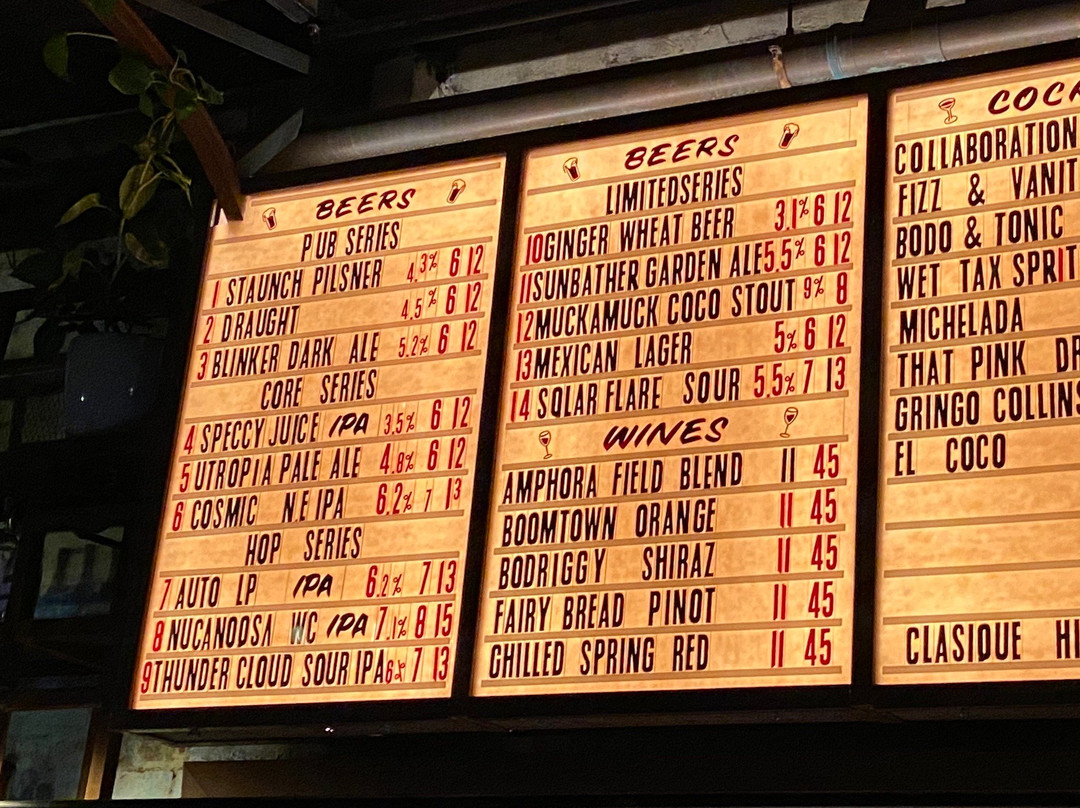 BEERS
PUB SERIES
1 STAUNCH PILSNER 4.3% 6 12
2 DRAUGHT 4.5% 6 12
3 BLINKER DARK ALE 5.2% 6 12
CORE SERIES
4 SPECCY JUICE IPA 3.5% 6 12
5 UTROPIA PALE ALE 4.8% 6 12
6 COSMIC N.E IPA 6.2% 7 13
HOP SERIES
7 AUTO LP IPA 6.2% 7 13
8 NUCANODSA WC IPA 7.1% 8 15
9 THUNDER CLOUD SOUR IPA 6% 7 13
BEERS
LIMITEDSERIES
10 GINGER WHEAT BEER 3.1% 6 12
11 SUNBATHER GARDEN ALE 5.5% 6 12
12 MUCKAMUCK COCO STOUT 9% 8
13 MEXICAN LAGER 5% 6 12
14 SOLAR FLARE SOUR 5.5% 7 13
WINES
AMPHORA FIELD BLEND 11 45
BOOMTOWN ORANGE 11 45
BODRIGGY SHIRAZ 11 45
FAIRY BREAD PINOT 11 45
GHILLED SPRING RED 11 45
COCK
COLLABORATION
FIZZ & VANIT
BODO & TONIC
WET TAX SPRIT
MICHELADA
THAT PINK DR
GRINGO COLLINS
EL COCO
CLASIQUE HI